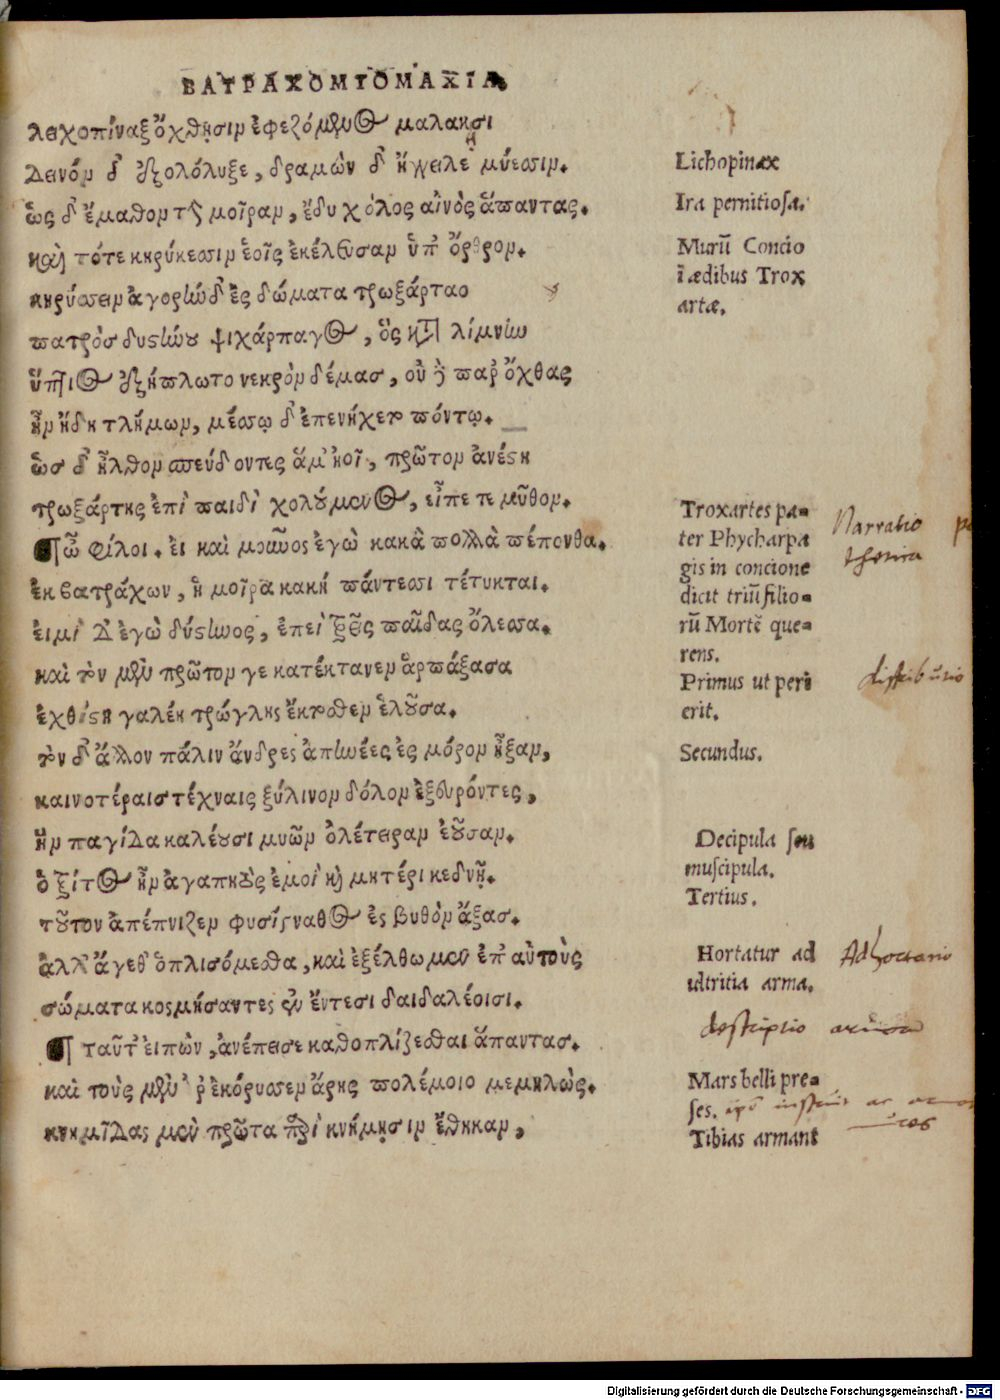 ΒΑΤΡΑΧΟΜΥΟΜΑΧΙΑ
λειχοπίναξ ὄχθῃσιν ἐφεζόμενος μαλακῇσι
Δεινὸν δ' ἐξολόλυξε, δραμὼν δ' ἤγγειλε μύεσσιν.
Lichopinax
ὣς δ' ἔμαθον τὴν μοῖραν, ἔδυ χόλος αἰνὸς ἅπαντας.
Ira pernitiosa.
καὶ τότε κηρύκεσσιν ἑοῖς ἐκέλευσαν ὑπ' ὄρθρον.
Murũ Concio
ĩ ædibus Trox
κηρύσσειν ἀγορὴν δ' ἐς δώματα τρωξάρταο
artæ.
πατρὸσ δυστήνου ψιχάρπαγος, ὃς κατὰ λίμνην
ὕπτιος ἐξήπλωτο νεκρὸν δέμασ, οὐ δὲ παρ' ὄχθας
ἦν ἤδη τλήμων, μέσσῳ δ' ἐπενήχετο πόντῳ.
ὡσ δ' ἦλθον σπεύδοντες ἅμ' ἠοῖ, πρῶτον ἀνέστη
τρωξάρτης ἐπὶ παιδὶ χολούμενος, εἶπε τε μῦθον.
Troxartes pa=
ter Phycharpa
gis in concione
dicit triũ filio=
rũ Mortẽ que=
rens.
Narratio
¶ ὦ φίλοι. εἰ καὶ μοῦνος ἐγὼ κακὰ πολλὰ πέπονθα.
ἐκ βατράχων, ἡ μοῖρα κακή πάντεσσι τέτυκται.
ἐιμὶ Δ' ἐγὼ δύστηνος, ἐπεὶ τρεῖς παῖδας ὄλεσσα.
καὶ τὸν μὲν πρῶτον γε κατέκτανεν ἁρπάξασα
Primus ut peri
erit.
distributio
ἐχθίστη γαλέη τρώγλης ἔκτοθεν ἑλοῦσα.
τὸν δ' ἄλλον πάλιν ἄνδρες ἀπηνέες ἐς μόρον ἦξαν,
Secundus.
καινοτέραισ τέχναις ξύλινον δόλον ἐξευρόντες,
ἣν παγίδα καλέουσι μυῶν ὀλέτειραν ἐοῦσαν.
Decipula seu
muscipula.
ὁ τρίτος ἦν ἀγαπητὸς ἐμοὶ καὶ μητέρι κεδνῇ.
Tertius.
τοῦτον ἀπέπνιζεν φυσίγναθος ἐς βυθὸν ἄξασ.
ἀλλ' ἄγεθ' ὁπλισόμεσθα, καὶ ἐξέλθωμεν ἐπ' αὐτοὺς
Hortatur ad
ultritia arma.
Adhortatio
σώματα κοσμήσαντες ἐν ἔντεσι δαιδαλέοισι.
descriptio
¶ ταῦτ' ἐιπὼν, ἀνέπεισε καθοπλίζεσθαι ἅπαντασ.
καὶ τοὺς μὲν ῥ' ἐκόρυσσεν ἄρης πολέμοιο μεμηλώς.
Mars belli pre=
ses.
κνημῖΔας μὲν πρῶτα περὶ κνήμῃσιν ἔθηκαν,
Tibias armant
Digitalisierung gefördert durch die Deutsche Forschungsgemeinschaft - DFG